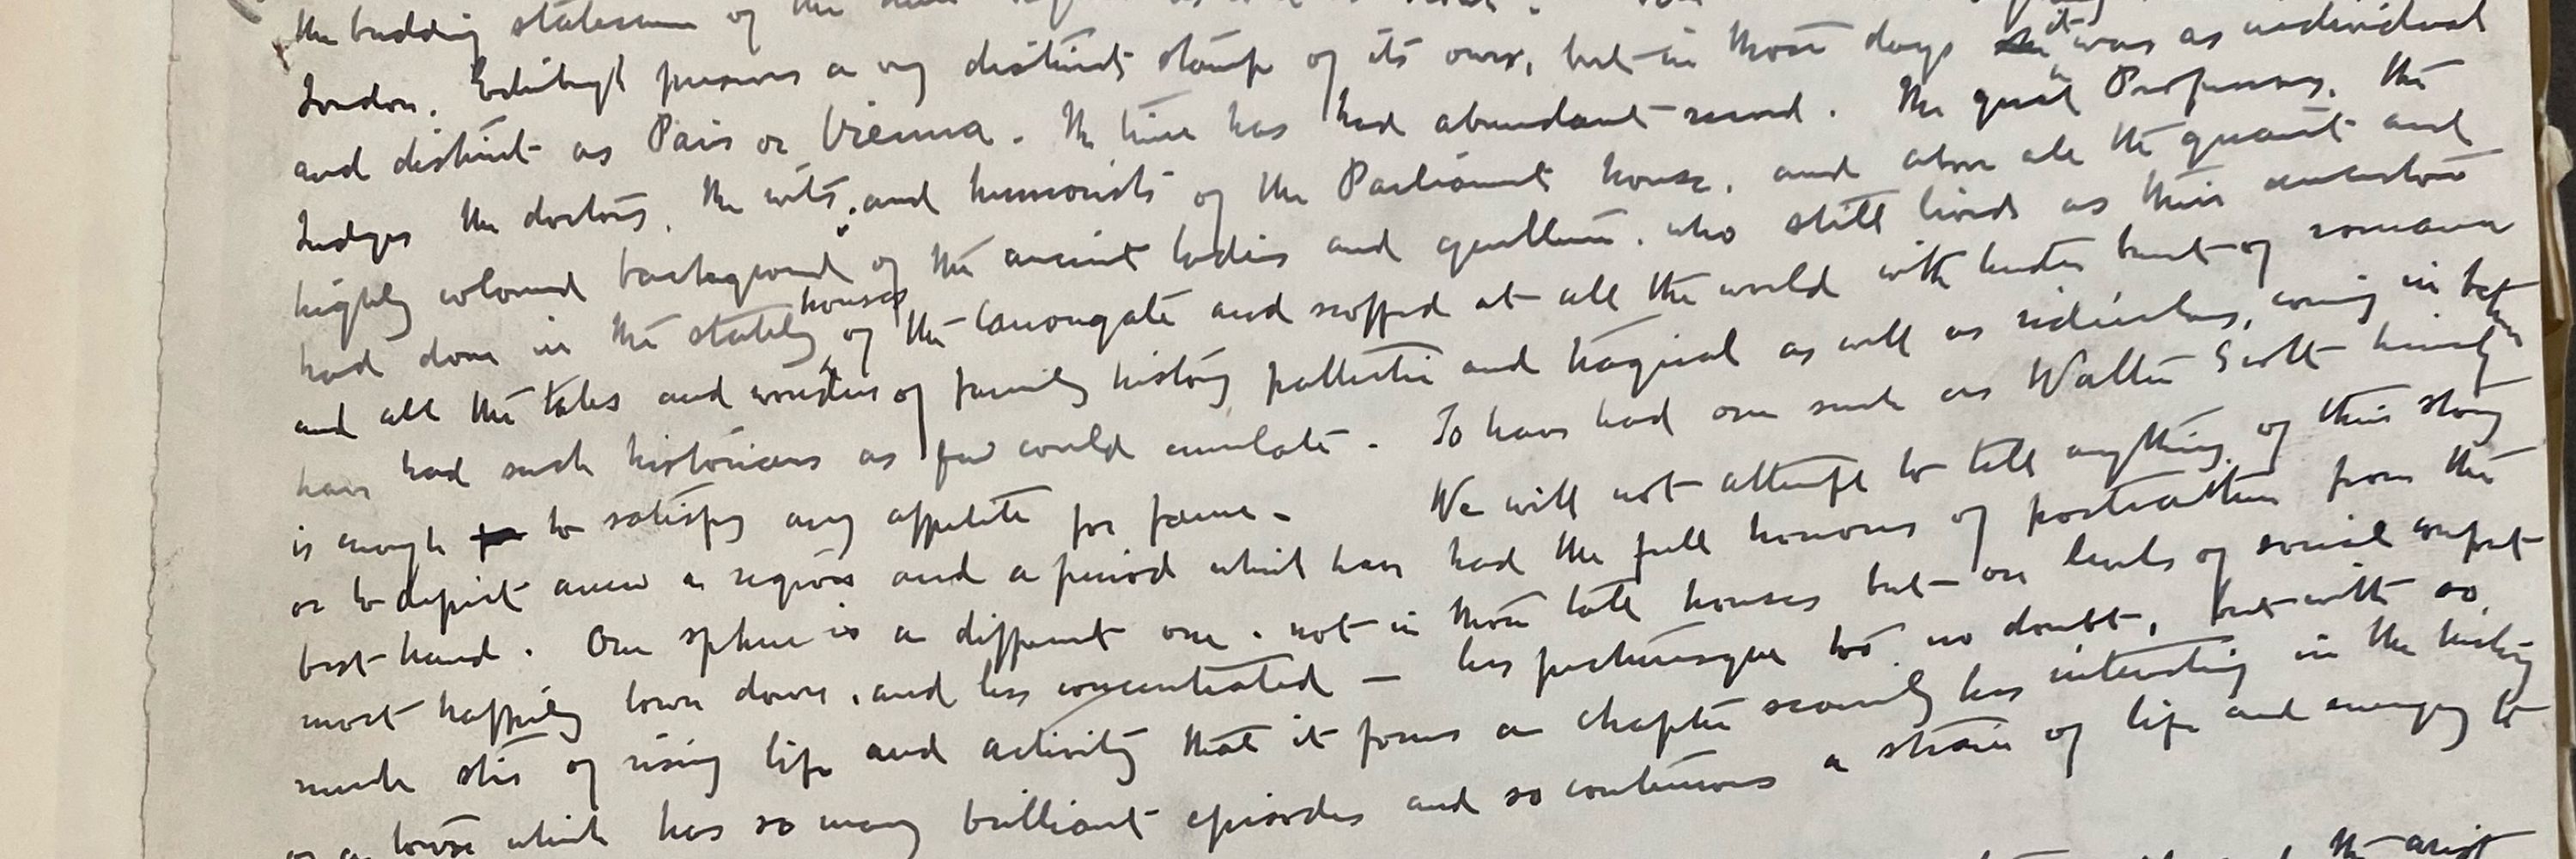 the budding statesmen of the
London. Edinburgh preserves a very distinct stamp of its own, but in those days it was as individual
and distinct as Paris or Vienna. The time has had abundant record. The great Professors, the
Judges the doctors, the wits, and humorists of the Parliament house, and above all the quaint and
highly coloured background of the ancient ladies and gentlemen, who still lived as their ancestors
had done in the stately houses of the Canongate and scoffed at all the world with
and all the tales and wonders of family history pathetic and tragical as well as ridiculous, coming in between
have had such historians as few could emulate. To have had one such as Walter Scott himself
is enough for to satisfy any appetite for fame. We will not attempt to tell anything of this story
or to depict anew a region and a period which have had the full honours of portraiture from the
best hand. Our sphere is a different one, not in those tall houses but on levels of social comfort
most happily town down, and less concentrated — less picturesque too, no doubt, but with so
much stir of rising life and activity that it forms a chapter scarcely less interesting in the history
of a town which has so many brilliant episodes and so continuous a strain of life and energy to
the